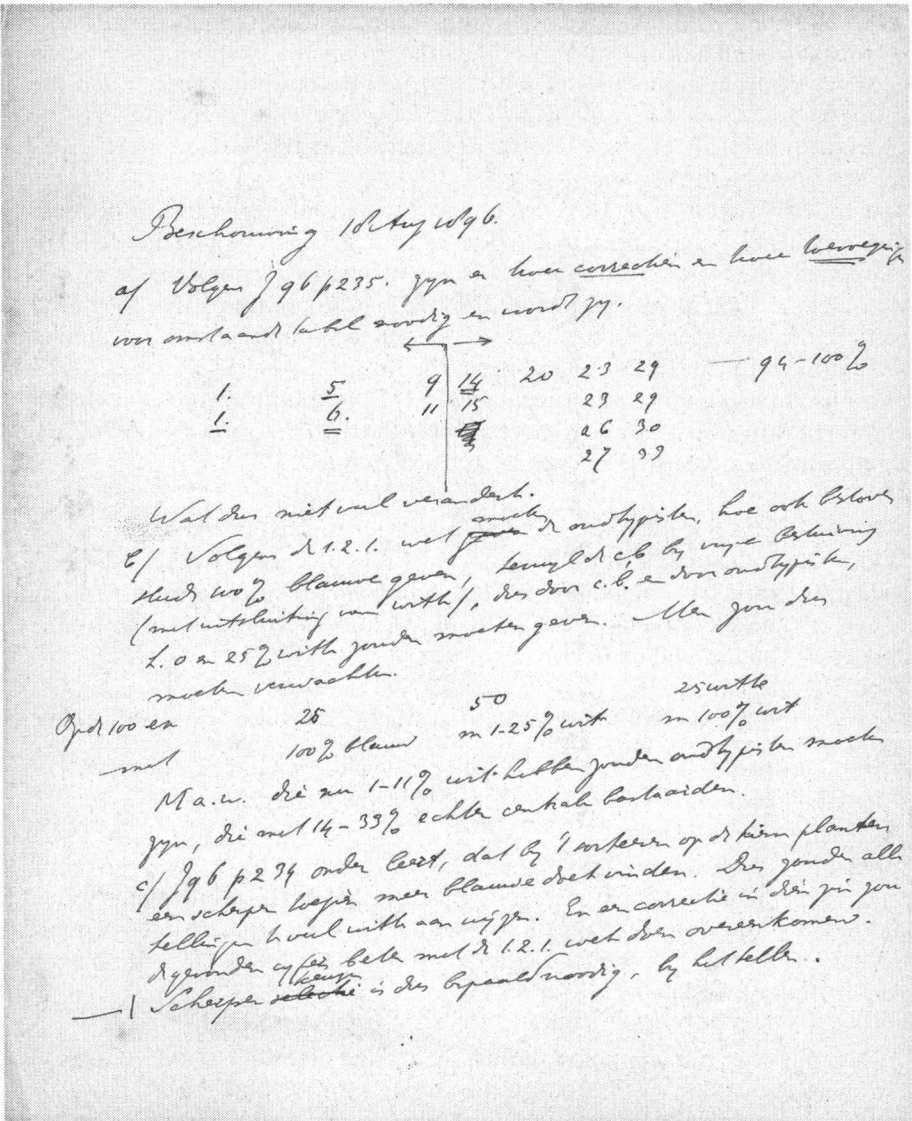 Beschouwing 18 Aug 1896.
a/ Volgens J 96 p 235. zyn er twee correcties en twee toevoegingen
voor omstaande tabel noodig en wordt zy.
← | →
1. 5 9 14 20 23 29 — 94-100%
1. 6. 11 15 23 29
26 30
27 33
Wat dus niet veel verandert.
b/ Volgens de 1.2.1. wet moeten de oudtypisten, hoe ook bestoven
steeds 100% blauwe geven, terwyl de c.b. by vrye bestuiving
(met uitsluiting van witte), dus door c.b. en door oudtypisten,
t. 0 en 25% witte zouden moeten geven. Men zou dus
moeten verwachten.
Op de 100 en 25 50 25 witte
met 100% blauw m 1-25% wit m 100% wit
M a.w. die nu 1-11% wit hebben zouden oudtypisten moeten
zyn, die met 14-33% echter centrale bastaarden.
c/ J 96 p 234 onder leert, dat by 't sorteeren op de kiem planten
een scherper toezien meer blauwe doet vinden. Dus zouden alle
tellingen te veel witte aanwyzen. En een correctie in dien zin zou
de gevonden cyfers beter met de 1.2.1. wet doen overeenkomen.
keuze
— | Scherper selectie is dus bepaald noodig, by het tellen.